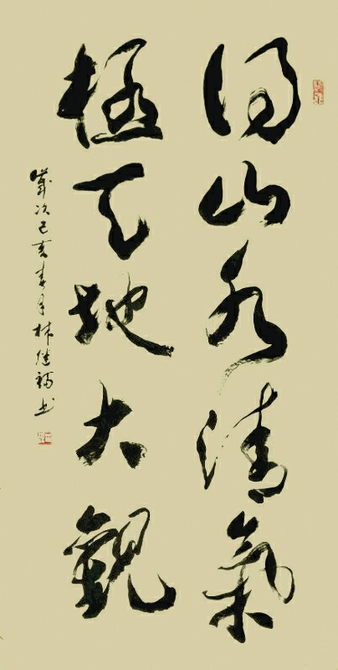 得山水清氣
極天地大觀
歲次己亥春月林继福书